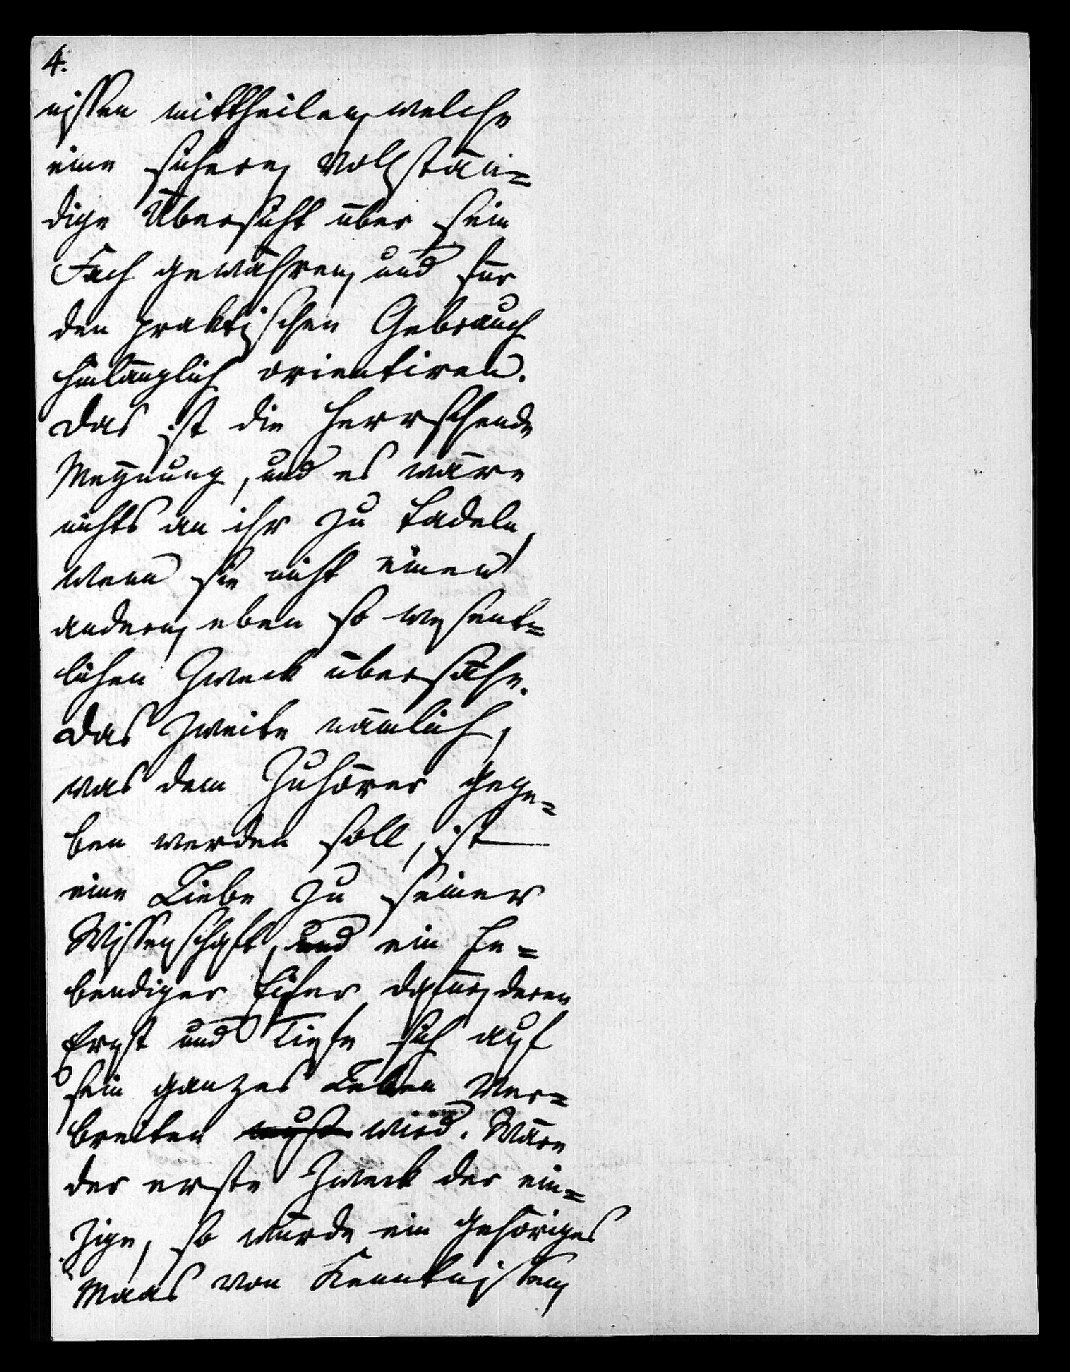 4.
nissen mittheilen, welche
eine sichere, vollstän=
dige Übersicht über sein
Fach gewähren, und für
den praktischen Gebrauch
hinlänglich orientiren.
Das ist die herrschende
Meynung, und es wäre
nichts an ihr zu tadeln,
wenn sie nicht einen
andern, eben so wesent=
lichen Zweck übersähe.
Das Zweite nämlich,
was dem Zuhörer gege=
ben werden soll, ist
eine Liebe zu seiner
Wissenschaft, und ein le=
bendiger Eifer dafür, deren
Ernst und Tiefe sich auf
sein ganzes Leben ver=
breiten muß wird. Wäre
der erste Zweck der ein=
zige, so würde ein gehöriges
Maas von Kenntnissen,